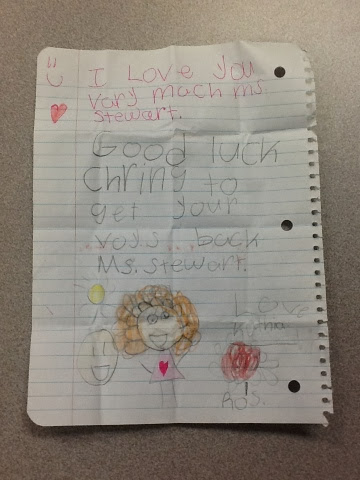 I Love you
vary mach ms.
stewart.
Good luck
Chring to
get your
voys back
Ms. stewart.
Love
Ros.